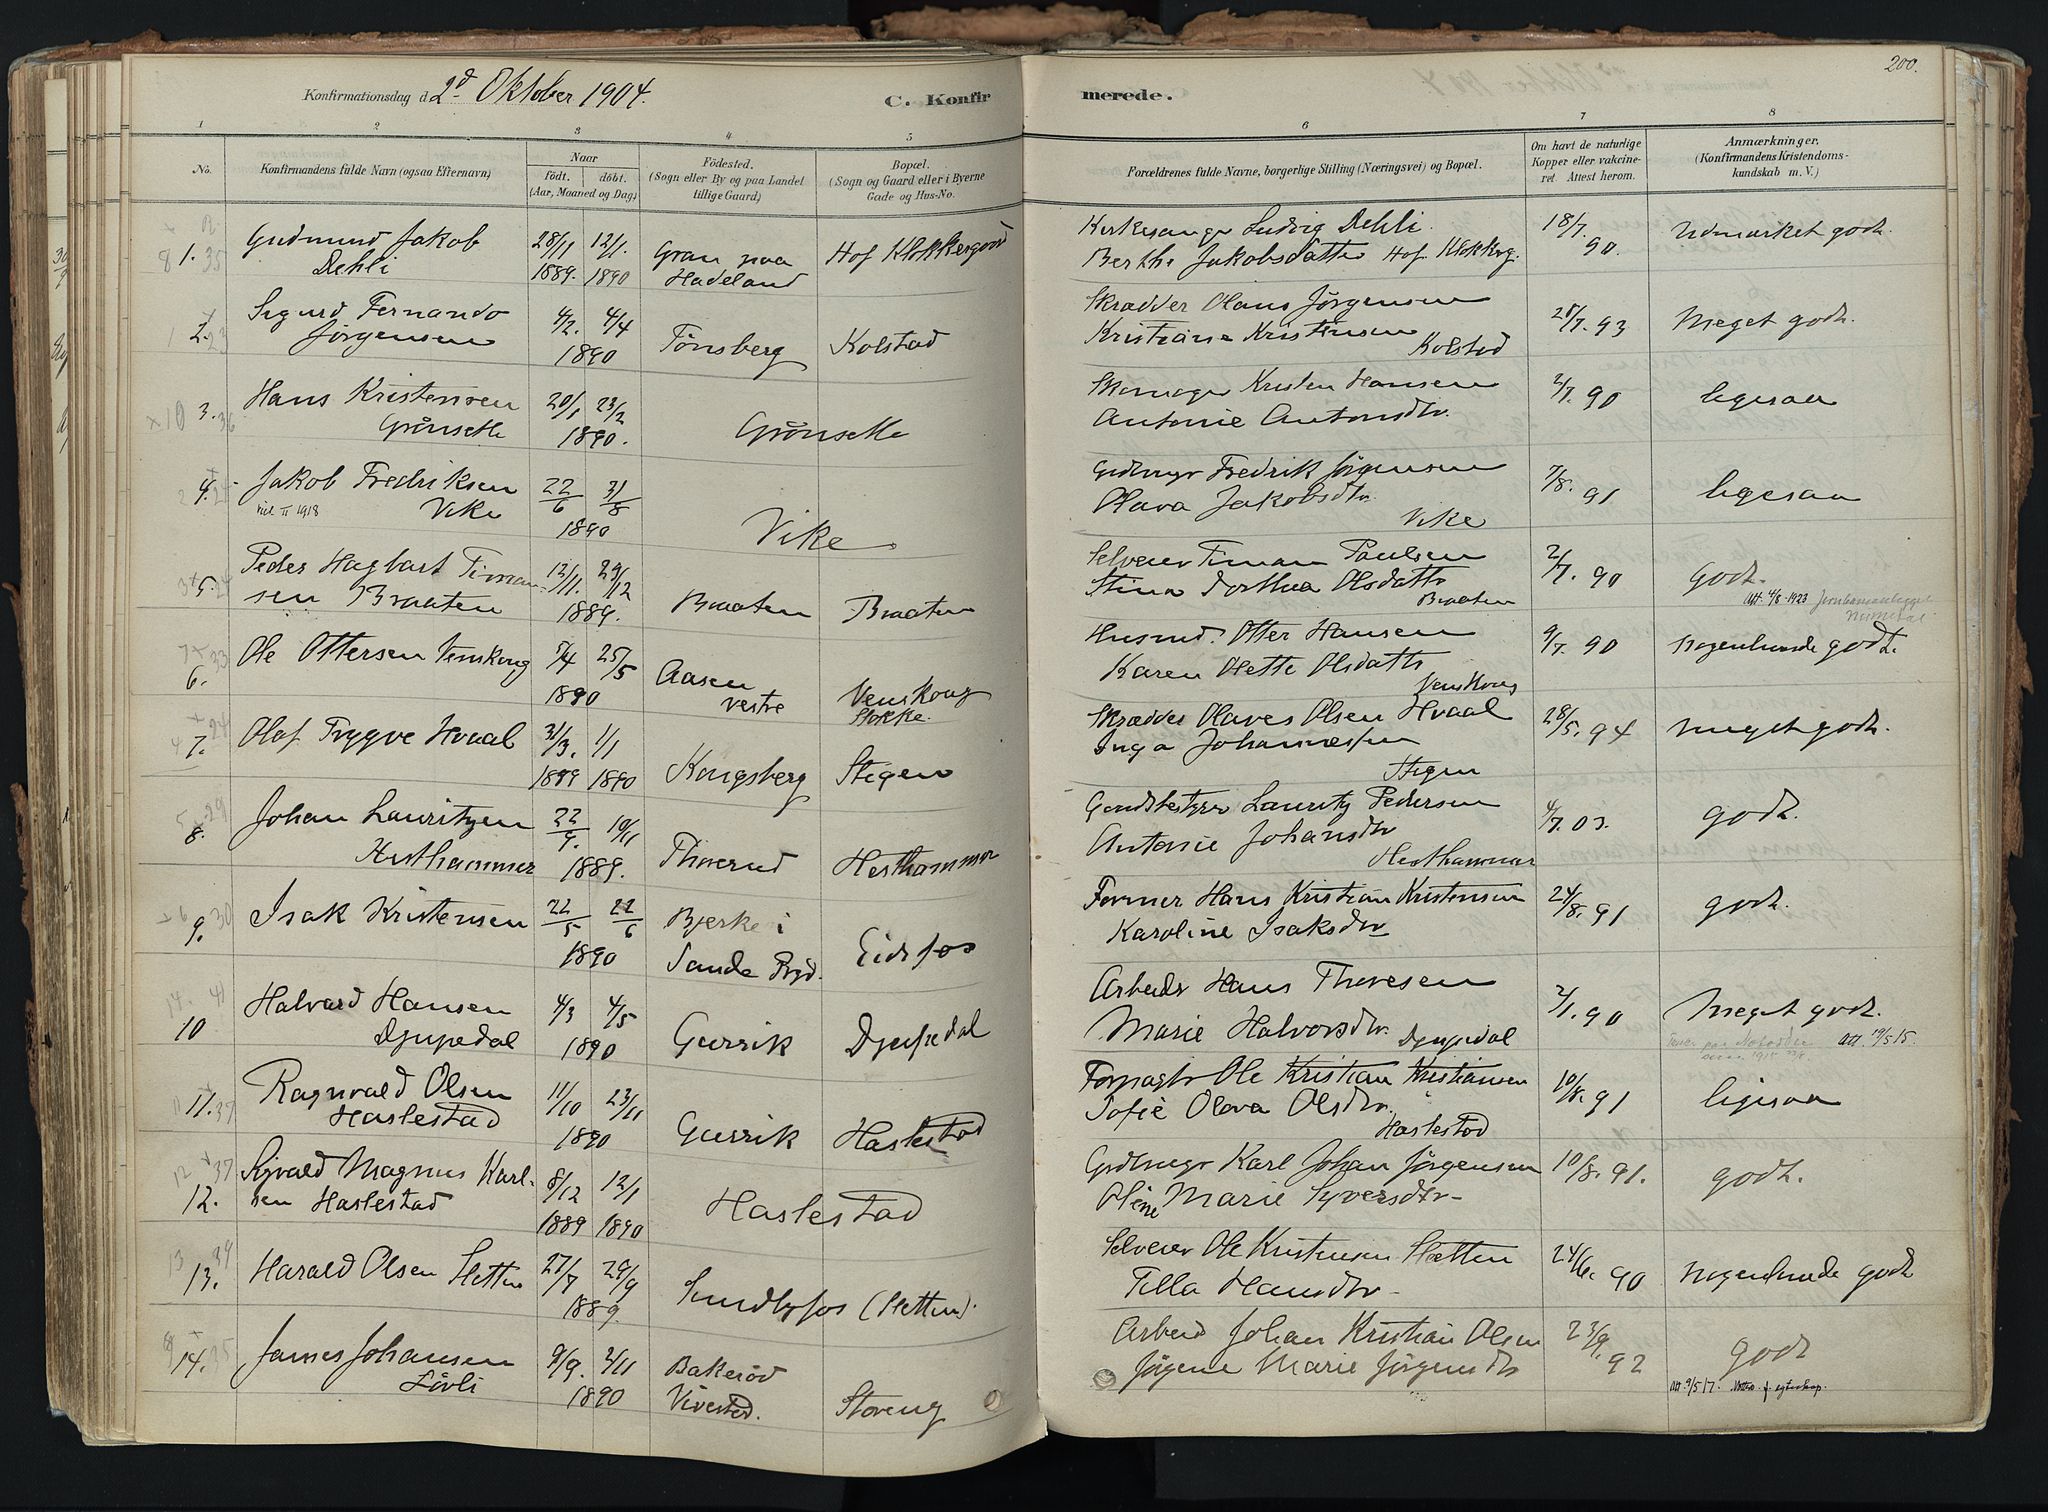 200.
Konfirmationsdag d. 2d Oktober 1904.
C. Konfirmerede.
1 2 3 4 5 6 7 8
No.
Konfirmandens fulde Navn (ogsaa Efternavn)
Naar
født. døbt.
(Aar, Maaned og Dag)
Fødested.
(Sogn eller By og paa Landet
tillige Gaard)
Bopæl.
(Sogn og Gaard eller i Byerne
Gade og Hus-No.
Forældrenes fulde Navne, borgerlige Stilling (Næringsvei) og Bopæl.
Om havt de naturlige
Kopper eller vakcine-
ret. Attest herom.
Anmærkninger.
(Konfirmandens Kristendoms-
kundskab m. V.)
1. Gudmund Jakob 28/11 12/1. Gran paa Hof Klokkergaard Kirkesanger Ludvig Dehli 18/7. Udmærket godt.
Dehli 1889. 1890 Hadeland Berthe Jakobsdatter Hof Klokkerg. 90.
2. Sigurd Fernando 4/2. 4/4 Tönsberg Kolstad Skrædder Olaus Jørgensen 93 Meget godt.
Jørgensen 1890 Kristiane Kristensen
Kolstad
3. Hans Kristensen 20/1 23/2 Grönsette Skomager Kristen Hansen 2/7. 90 ligesaa
Grönsette 1890. Antonie Antonsdtr.
4. Jakob Fredriksen 22/6 31/8 Vike Grdbruger Fredrik Jørgensen 7/8. 91 ligesaa
Vike 1890 Olava Jakobsdtr.
viel II 1918 Vike
5. Peder Hagbart Timan- 12/11. 29/12 Braaten Braaten Selveier Timan Paulsen 2/7. 90 godt.
sen Braaten 1889. Stina Dorthea Olsdatter
Braaten Att. 4/8-1923
6. Ole Ottersen Venskoug 7/4 25/5 Aasen Venskoug Husmd. Otter Hansen 9/7. 90 Nogenlunde godt.
1890 vestre Stokke. Karen Olette Olsdatter
Venskoug
7. Olaf Trygve Hvaal 31/3. 1/1 Kongsberg Stegen Skrædder Olaves Olsen Hvaal 28/5. 94 meget godt.
1889 1890 Inga Johannesen
Stegen
8. Johan Lauritzen 22/9. 10/11 Thorrud Hesthammer Gaardsbestyrer Lauritz Pedersen 4/7. 03. godt.
Hesthammer 1889. Antonie Johansdtr
Hesthammer
9. Isak Kristensen 22/5 22/6 Bjerke i Eidsfos Former Hans Kristian Kristensen 24/8. 91 godt.
1890 Sande Prgd. Karoline Isaksdtr
10 Halvard Hansen 4/3 4/5 Gurrik Djupedal Arbeider Hans Thoresen 2/1. 90 Meget godt.
Djupedal 1890 Marie Halvorsdtr. Djupedal Att. 19/5 15.
11. Ragnvald Olsen 11/10 23/11 Gurrik Haslestad Forpagter Ole Kristian Kristiansen 10/8. 91 ligesaa
Haslestad 1890 Sofie Olava Olsdtr.
Haslestad
12. Sigvald Magnus Karl- 8/12 12/1 Haslestad Grdbruger Karl Johan Jørgensen 10/8. 91. godt.
sen Haslestad 1889 1890 Oline Marie Syversdtr-
13. Harald Olsen Sletten 27/7 29/9 Sundbyfos (Sletten). Selveier Ole Kristensen Sletten 24/6. 90 Nogenlunde godt
1889. Tilla Hansdtr-
14. James Johansen 9/9. 2/11 Bakerød Storeng Arbeid Johan Kristian Olsen 23/9. godt
Lövli 1890 Vivestad. Jørgene Marie Jørgensdtr 92
Att. 9/5 17.